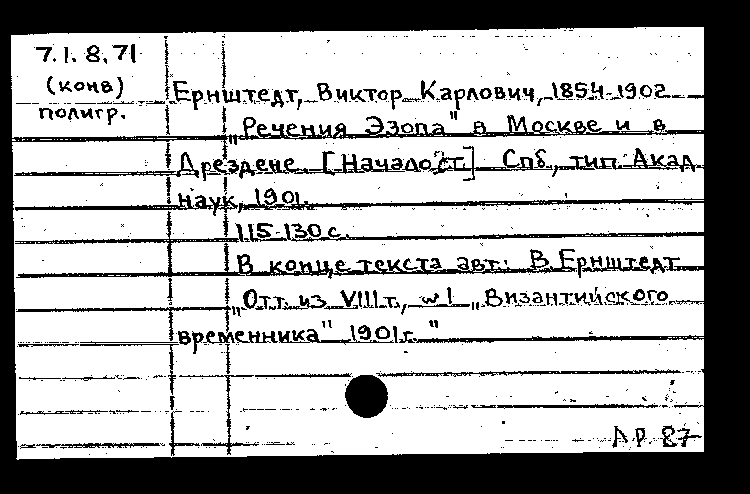 7.1.8.71
(конв)
полигр.
Ернштедт, Виктор Карлович, 1854-1902
„Речения Эзопа" в Москве и в
Дрездене. [Начало ст.] Спб., тип. Акад.
наук, 1901.
115-130 с.
В конце текста авт.: В. Ернштедт
„Отт. из VIII т., №1 „Византийского
временника" 1901 г."
АР. 87